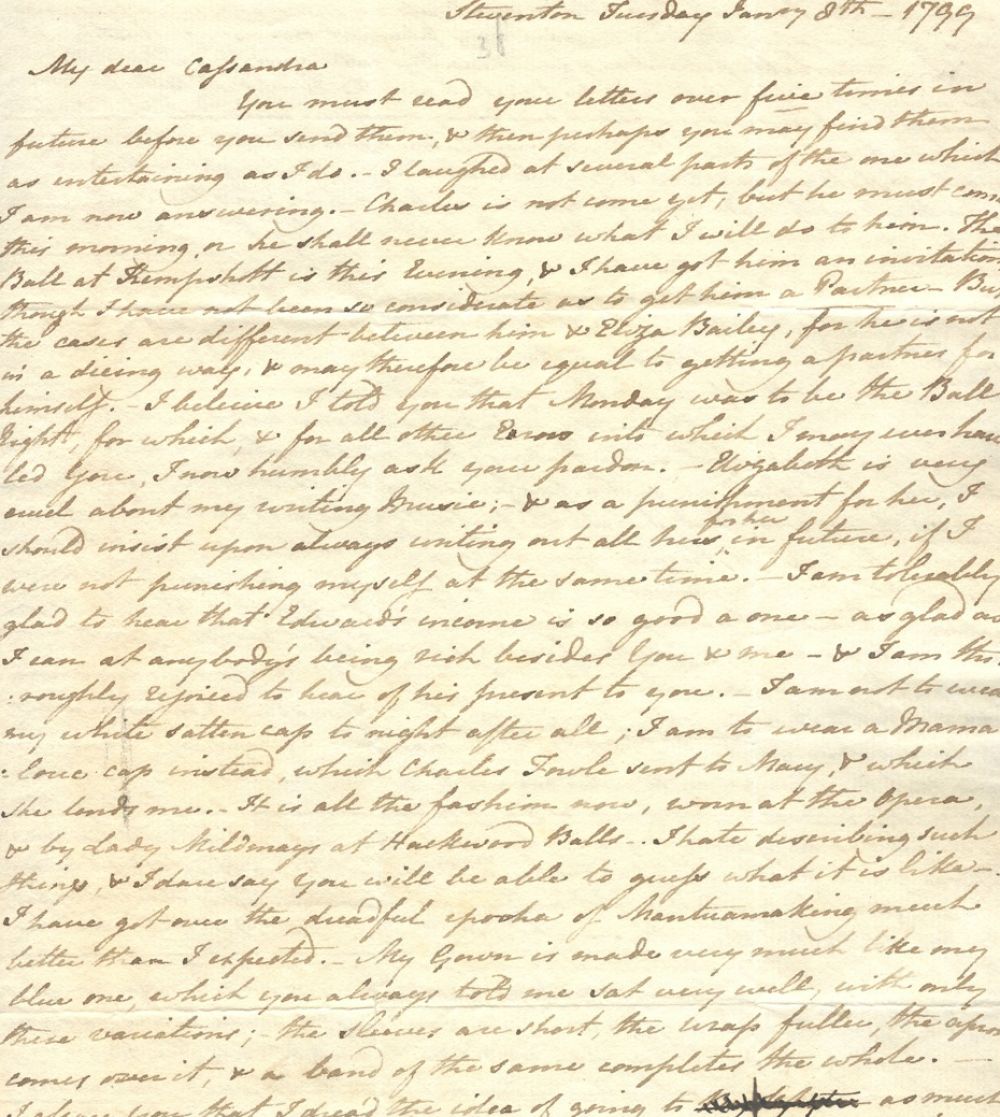 Steventon Tuesday Janry 8th - 1799
38
My dear Cassandra
You must read your letters over five times in
future before you send them, & then perhaps you may find them
as entertaining as I do. - I laughed at several parts of the one which
I am now answering. - Charles is not come yet, but he must com
this morning, or he shall never know what I will do to him. The
Ball at Kempshott is this Evening, & I have got him an invitation
though I have not been so considerate as to get him a Partner - Bu
the cases are different between him & Eliza Bailey, for he is not
in a dieing way, & may therefore be equal to getting a partner for
himself. - I beleive I told you that Monday was to be the Ball
Night, for which, & for all other Errors into which I may ever have
led you, I now humbly ask your pardon. - Elizabeth is very
cruel about my writing Music; - & as a punishment for her, I
for her
should insist upon always writing out all hers in future, if I
were not punishing myself at the same time. - I am tolerably
glad to hear that Edward's income is so good a one - as glad as
I can at anybody's being rich besides You & me - & I am tho
:roughly rejoiced to hear of his present to you. - I am not to wea
my white satten cap to night after all; I am to wear a Mama
:louc cap instead, which Charles Fowle sent to Mary, & which
she lends me. - It is all the fashion now, worn at the Opera,
& by Lady Mildmays at Hackwood Balls -. I hate describing such
things, & I dare say You will be able to guess what it is like -.
I have got over the dreadful epocha of Mantuamaking much
better than I expected. - My Gown is made very much like my
blue one, which you always told me sat very well, with only
these variations; - the sleeves are short, the wrap fuller, the apron
comes over it, & a band of the same completes the whole. -
I assure you that I dread the idea of going to as much